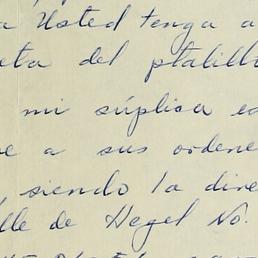 a Usted tenga a
ta del platill
mi súplica es
e a sus ordene
, siendo la dire
lle de Hegel No.